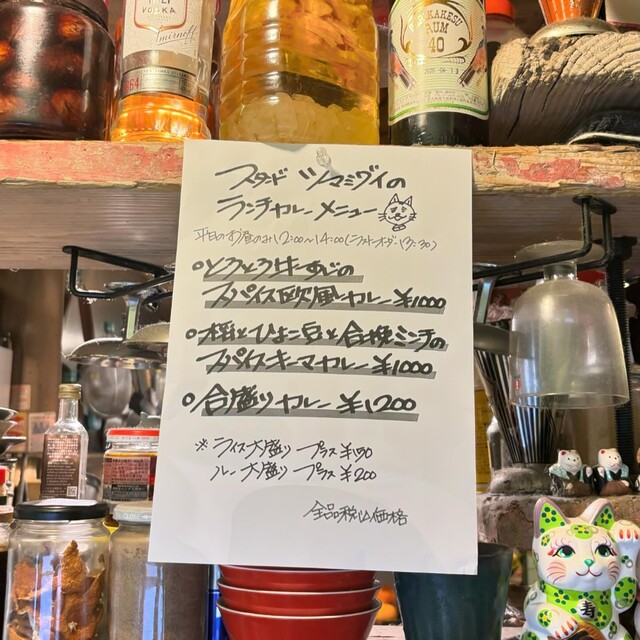 VODKA
Smirnoff
RUM
40
スタンド ツマミグイの
ランチカレーメニュー
平日のお昼のみ12:00〜14:00(ラストオーダー13:30)
・とろとろ牛すじの
スパイス欧風カレー ¥1000
・ひよこ豆と合挽ミンチの
スパイスキーマカレー ¥1000
・合盛りカレー ¥1200
※ ライス大盛り プラス¥150
ルー大盛り プラス¥200
全品税込価格
寿